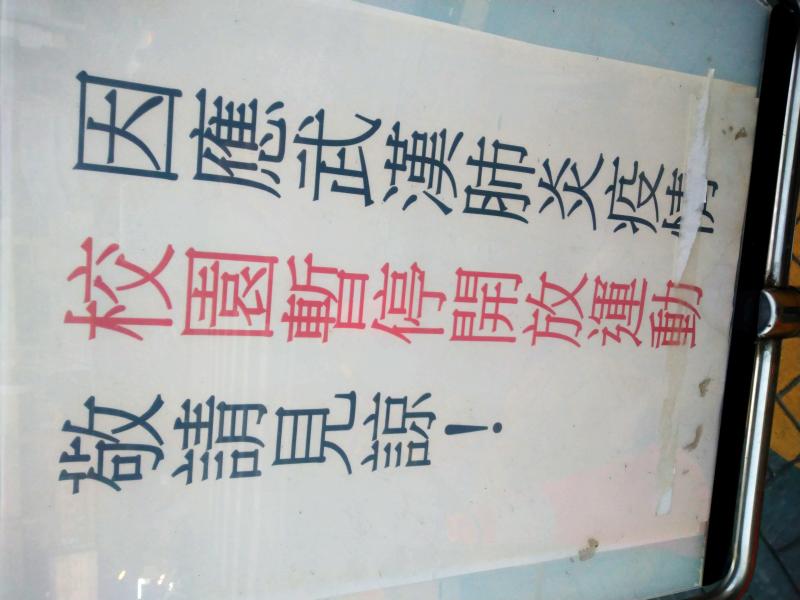 因應武漢肺炎疫情
校園暫停開放運動
敬請見諒！